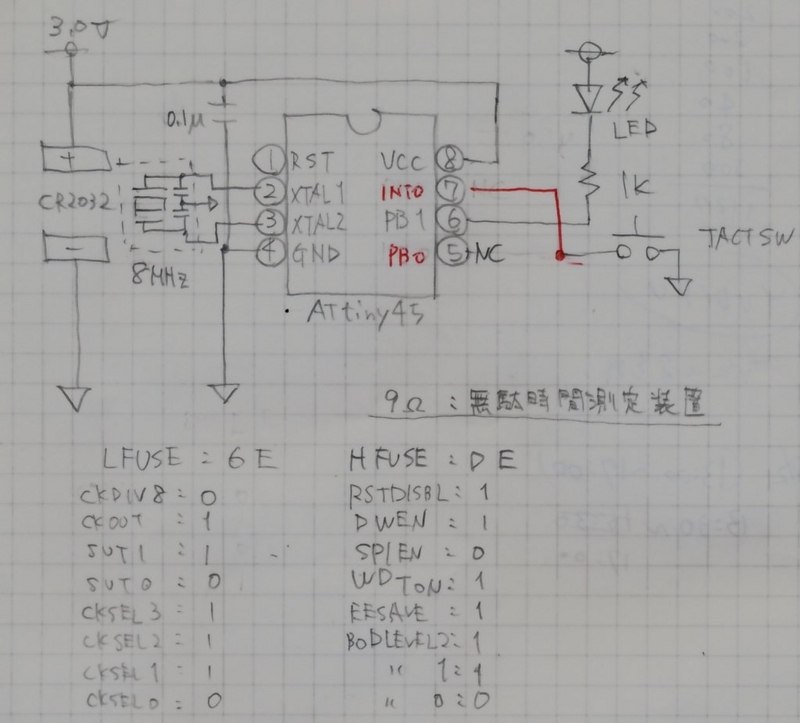 3.0V
0.1μ
LED
1K
TACT SW
+
CR2032
-
8MHz
① RST VCC ⑧
② XTAL1 INT0 ⑦
③ XTAL2 PB1 ⑥
④ GND PB0 ⑤ NC
ATtiny45
9Ω : 無駄時間測定装置
LFUSE : 6E HFUSE : DE
CKDIV8 : 0 RSTDISBL : 1
CKOUT : 1 DWEN : 1
SUT1 : 1 SPIEN : 0
SUT0 : 0 WDTON : 1
CKSEL3 : 1 EESAVE : 1
CKSEL2 : 1 BODLEVEL2 : 1
CKSEL1 : 1 〃 1 : 1
CKSEL0 : 0 〃 0 : 0